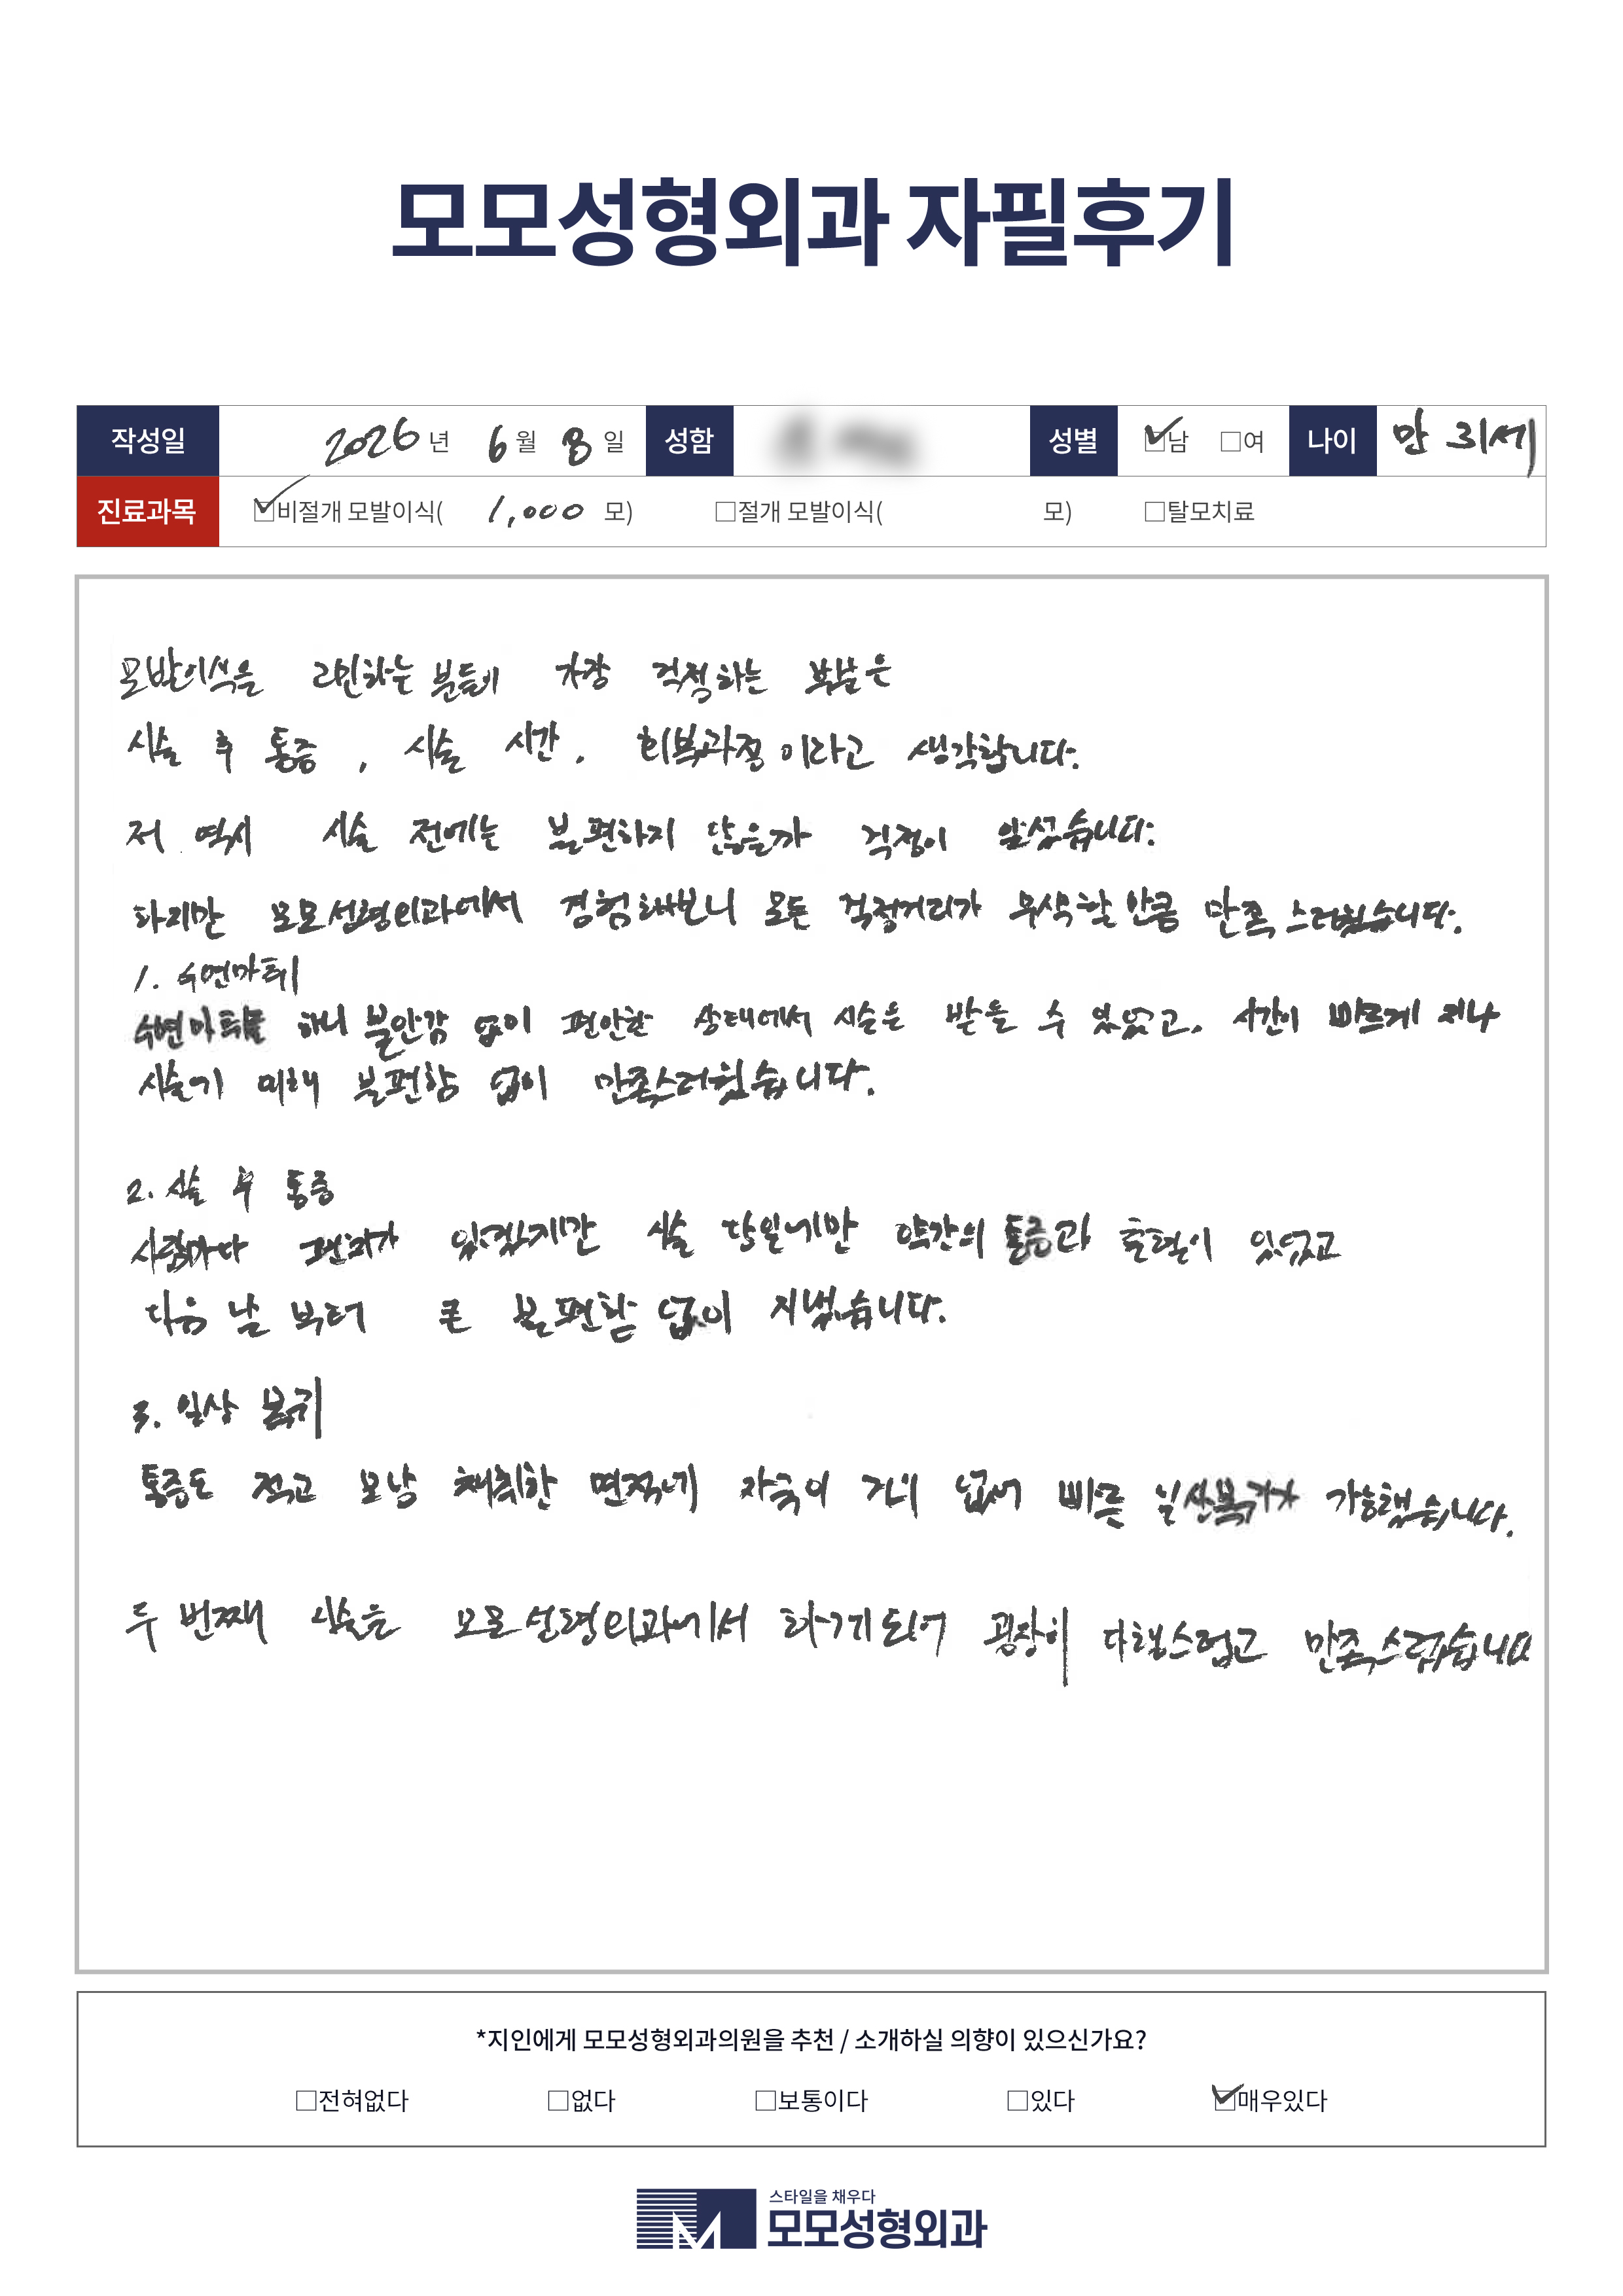 모모성형외과 자필후기
작성일 2026년 6월 8일 성함 성별 ☑남 □여 나이 만 31세
진료과목 ☑비절개 모발이식( 1,000 모) □절개 모발이식( 모) □탈모치료
모발이식을 고민하는 분들이 가장 걱정하는 부분은
시술 후 통증, 시술 시간, 회복과정이라고 생각합니다.
저 역시 시술 전에는 불편하지 않을까 걱정이 앞섰습니다.
하지만 모모성형외과에서 경험해보니 모든 걱정거리가 무색할만큼 만족스러웠습니다.
1. 수면마취
수면마취를 하니 불안감 없이 편안한 상태에서 시술을 받을 수 있었고, 시간이 빠르게 지나
시술기 의해 불편함 없이 만족스러웠습니다.
2. 시술 후 통증
사람마다 편차가 있겠지만 시술 당일에만 약간의 통증과 출혈이 있었고
다음 날 부터 큰 불편함 없이 지냈습니다.
3. 일상 복귀
통증도 적고 모낭 채취한 면적에 자국이 거의 없어 빠른 일상복귀가 가능했습니다.
두 번째 시술은 모모성형외과에서 하게되어 굉장히 다행스럽고 만족스럽습니다
*지인에게 모모성형외과의원을 추천 / 소개하실 의향이 있으신가요?
□전혀없다 □없다 □보통이다 □있다 ☑매우있다
스타일을 채우다
모모성형외과